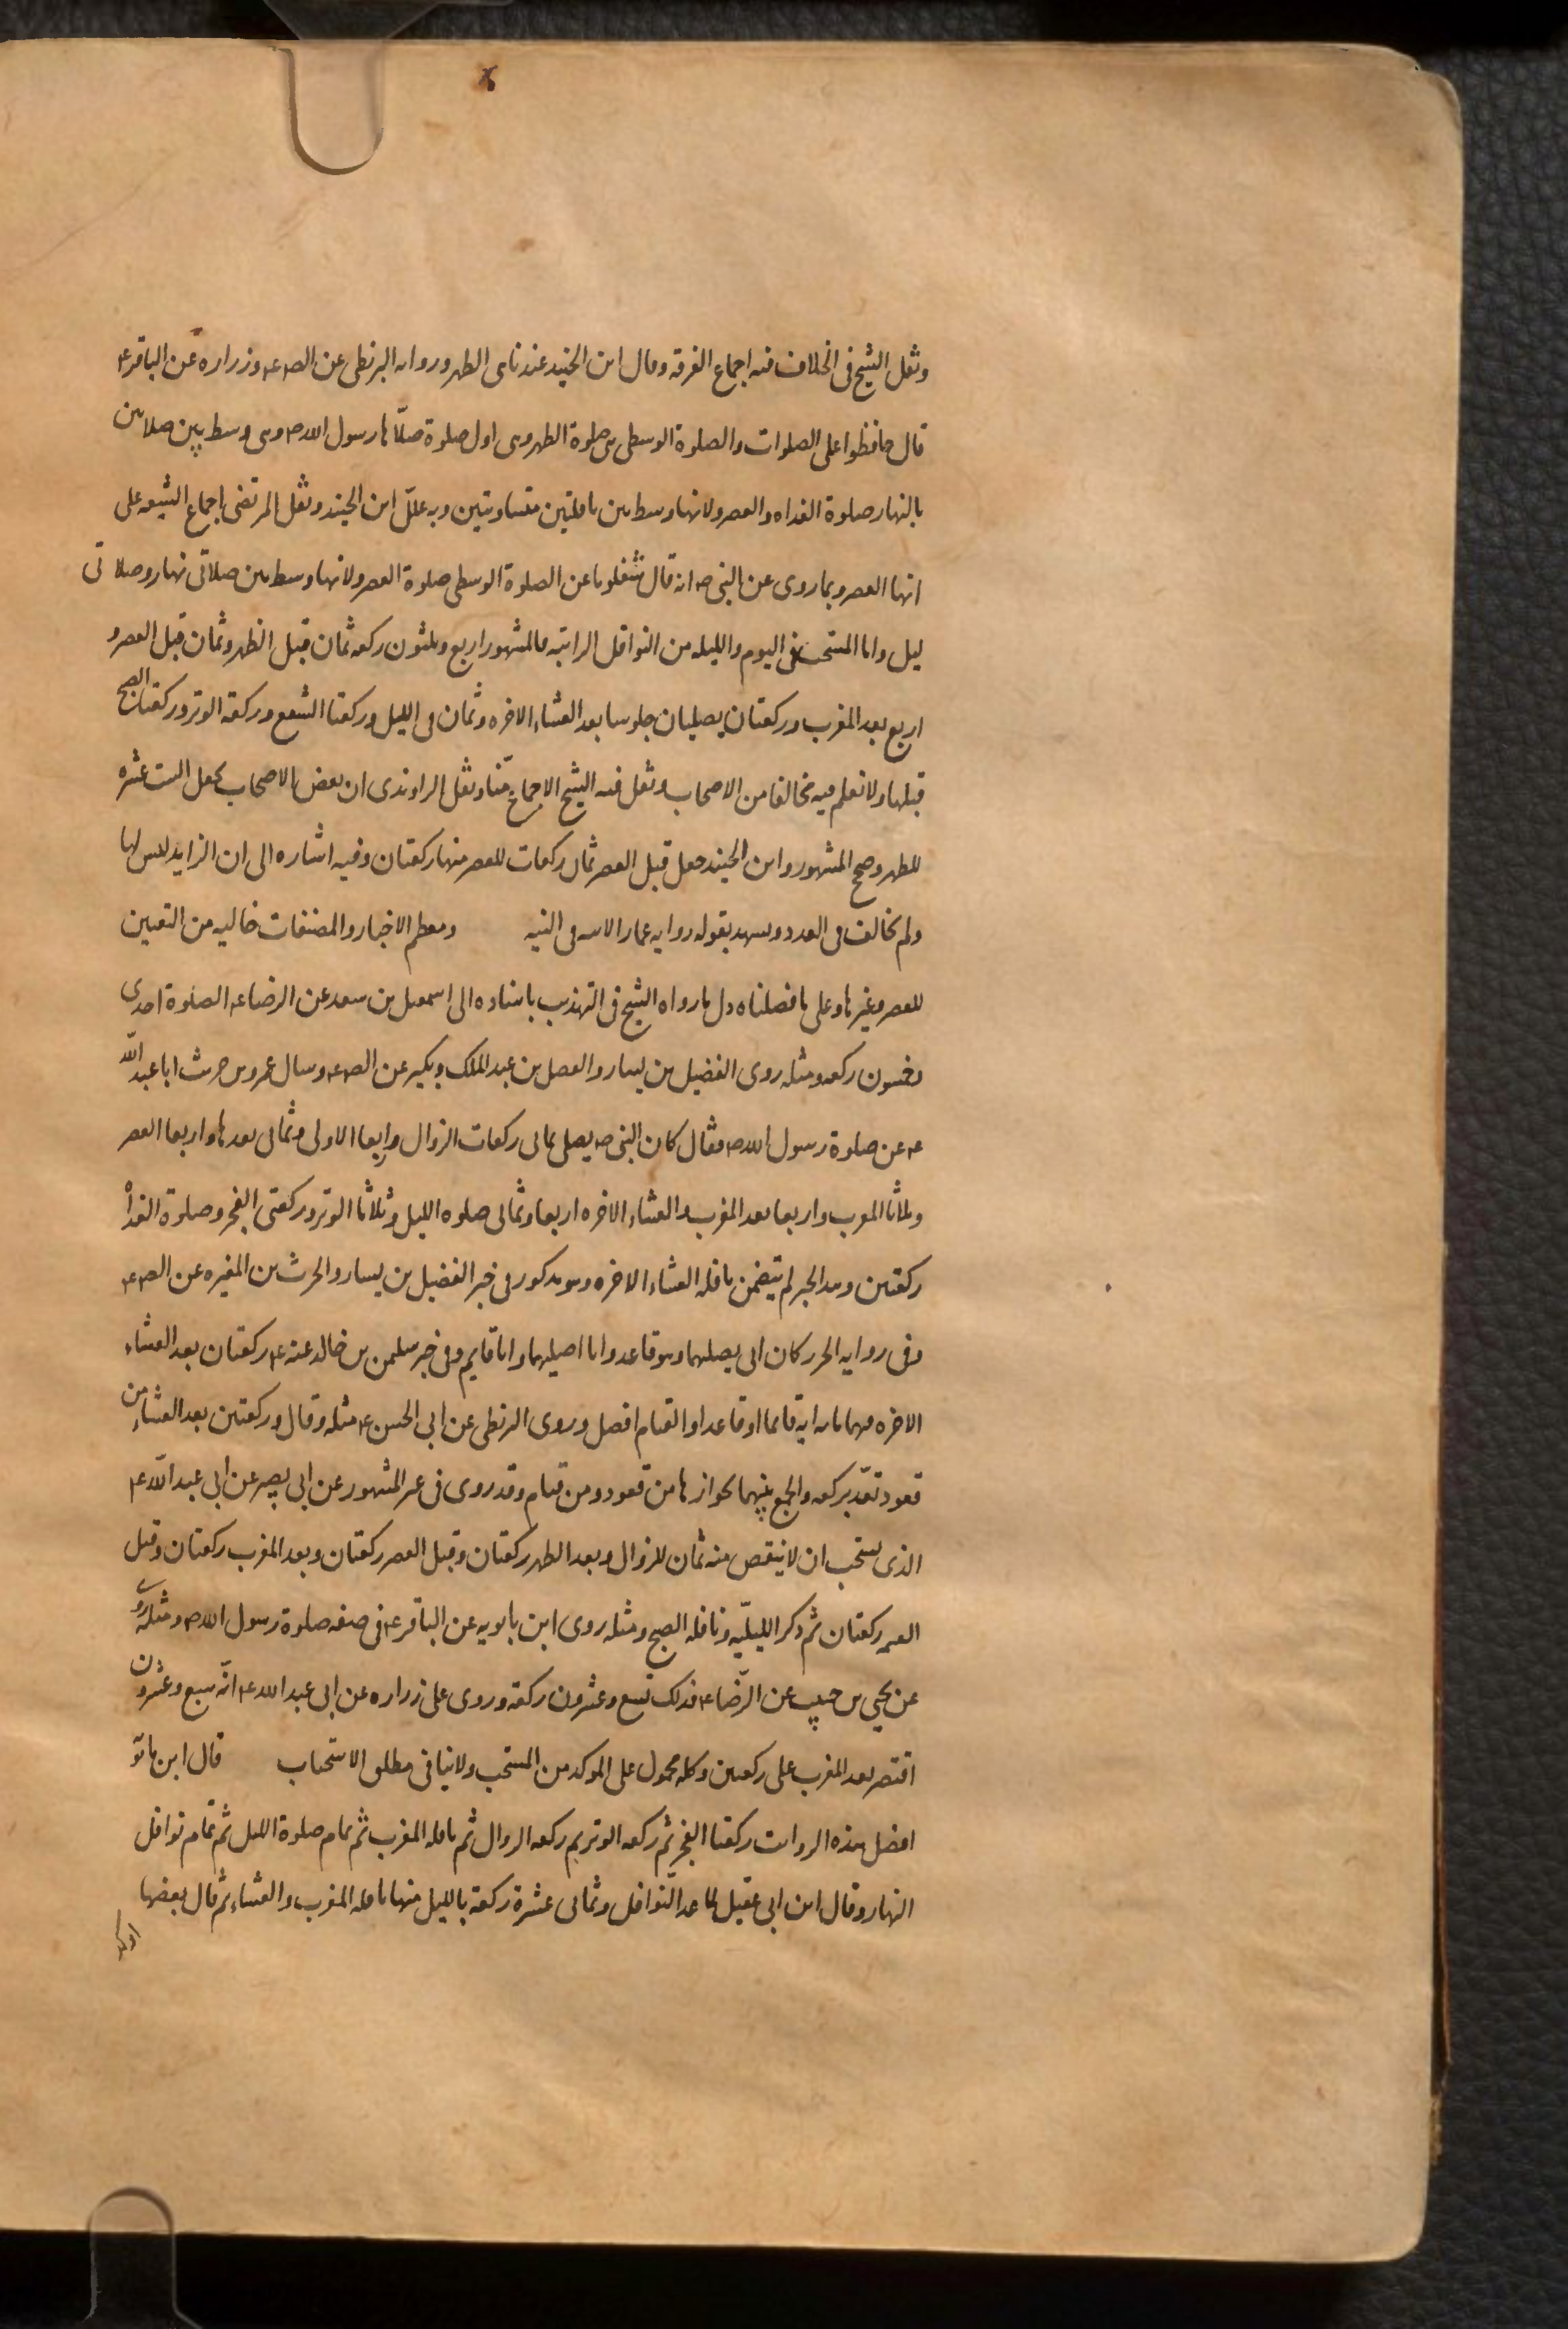 ونقل الشيخ فى الخلاف فيه اجماع الفرقة وقال ابن الجنيد عندنا هى الظهر ورواه البزنطى عن الص ع وزراره عن الباقر ع
قال حافظوا على الصلوات والصلوة الوسطى هى صلوة الظهر وهى اول صلوة صلّاها رسول الله ص وهى وسط بين صلاتين
بالنهار صلوة الغداه والعصر ولانها وسط بين نافلتين متساويتين وبه علّل ابن الجنيد ونقل المرتضى اجماع الشيعه على
انها العصر وبما روى عن النبى ص انه قال شغلونا عن الصلوة الوسطى صلوة العصر ولانها وسط بين صلاتى نهار وصلاتى
ليل واما المستحب فى اليوم والليله من النوافل الراتبه فالمشهور اربع وثلثون ركعه ثمان قبل الظهر وثمان قبل العصر و
اربع بعد المغرب وركعتان يصليان جلوسا بعد العشاء الاخره وثمان فى الليل وركعتا الشفع وركعة الوتر وركعتان الصبح
قبلها ولا نعلم فيه مخالفا من الاصحاب ونقل فيه الشيخ الاجماع منّا ونقل الراوندى ان بعض الاصحاب يجعل الست عشره
للظهر وصح المشهور وابن الجنيد جعل قبل العصر ثمان ركعات للعصر منها ركعتان وفيه اشاره الى ان الزايد ليس لها
ولم يخالف فى العدد ويشهد بقوله روايه عمار الاتيه فى النيه ومعظم الاخبار والمصنفات خاليه من التعيين
للعصر وغيرها وعلى ما فصلناه دل ما رواه الشيخ فى التهذيب باسناده الى اسمعيل بن سعد عن الرضا ع الصلوة احدى
وخمسون ركعه ومثله روى الفضيل بن يسار والفضل بن عبد الملك وبكير عن الص ع وسال عمرو بن حرث ابا عبد الله
ع عن صلوة رسول الله ص فقال كان النبى ص يصلى ثمانى ركعات الزوال واربعا الاولى وثمانى بعدها واربعا العصر
وثلاثا المغرب واربعا بعد المغرب والعشاء الاخره اربعا وثمانى صلوه الليل وثلاثا الوتر وركعتى الفجر وصلوة الغداة
ركعتين وهذا الخبر لم يتضمن نافله العشاء الاخره وهو مذكور فى خبر الفضيل بن يسار والحرث بن المغيره عن الص ع
وفى روايه الحرث كان ابى يصليهما وهو قاعد وانا اصليهما وانا قايم وفى خبر سليمن بن خالد عنه ع ركعتان بعد العشاء
الاخره فيهما ماىه ايه قائما او قاعدا والقيام افضل وروى البزنطى عن ابى الحسن ع مثله وقال وركعتين بعد العشاء من
قعود تعدّ بركعه والجمع بينهما بجوازها من قعود ومن قيام وقد روى فى غير المشهور عن ابى بصير عن ابى عبد الله ع
الذى يستحب ان لا ينقص منه ثمان للزوال وبعد الظهر ركعتان وقبل العصر ركعتان وبعد المغرب ركعتان وقبل
العتمه ركعتان ثم ذكر الليليّه ونافله الصبح ومثله روى ابن بابويه عن الباقر ع فى صفه صلوة رسول الله ص ومثله روى
عن يحيى بن حبيب عن الرّضا ع فذلك تسع وعشرون ركعة وروى على زراره عن ابى عبد الله ع انّه سبع وعشرون
اقتصر بعد المغرب على ركعتين وكله محمول على الموكد من المستحب ولا ينافى مطلق الاستحباب قال ابن بابويه
افضل هذه الرواتب ركعتا الفجر ثم ركعه الوتر ثم ركعه الزوال ثم نافله المغرب ثم تمام صلوة الليل ثم تمام نوافل
النهار وقال ابن ابى عقيل لما عدّ النوافل وثمانى عشرة ركعة بالليل منها نافله المغرب والعشاء ثم قال بعضها
اوكد